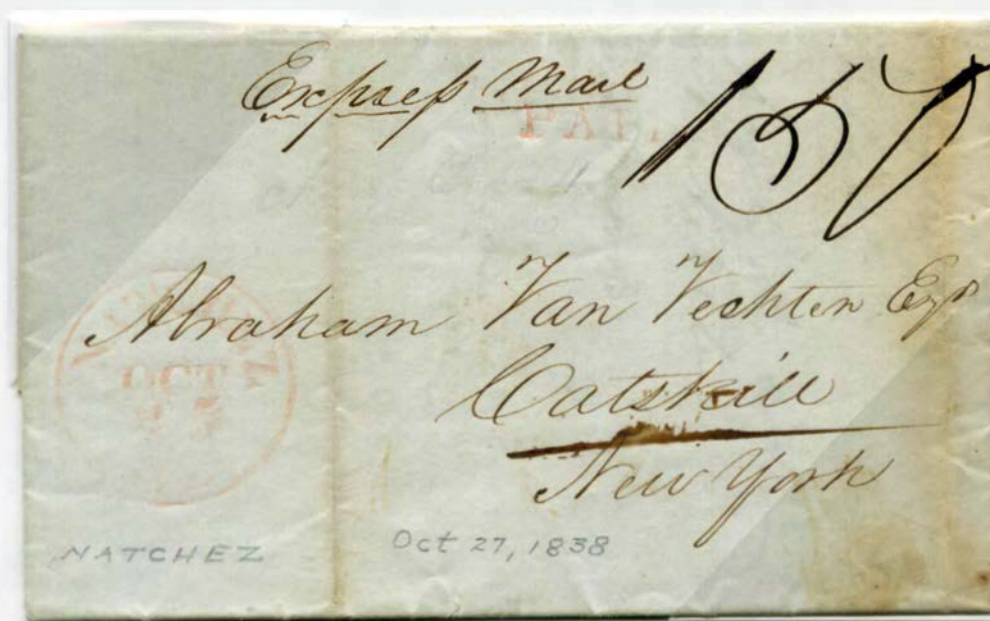 Express Mail
PAID
150
Abraham Van Vechten Esqr
Catskill
New York
NATCHEZ
OCT
NATCHEZ Oct 27, 1838